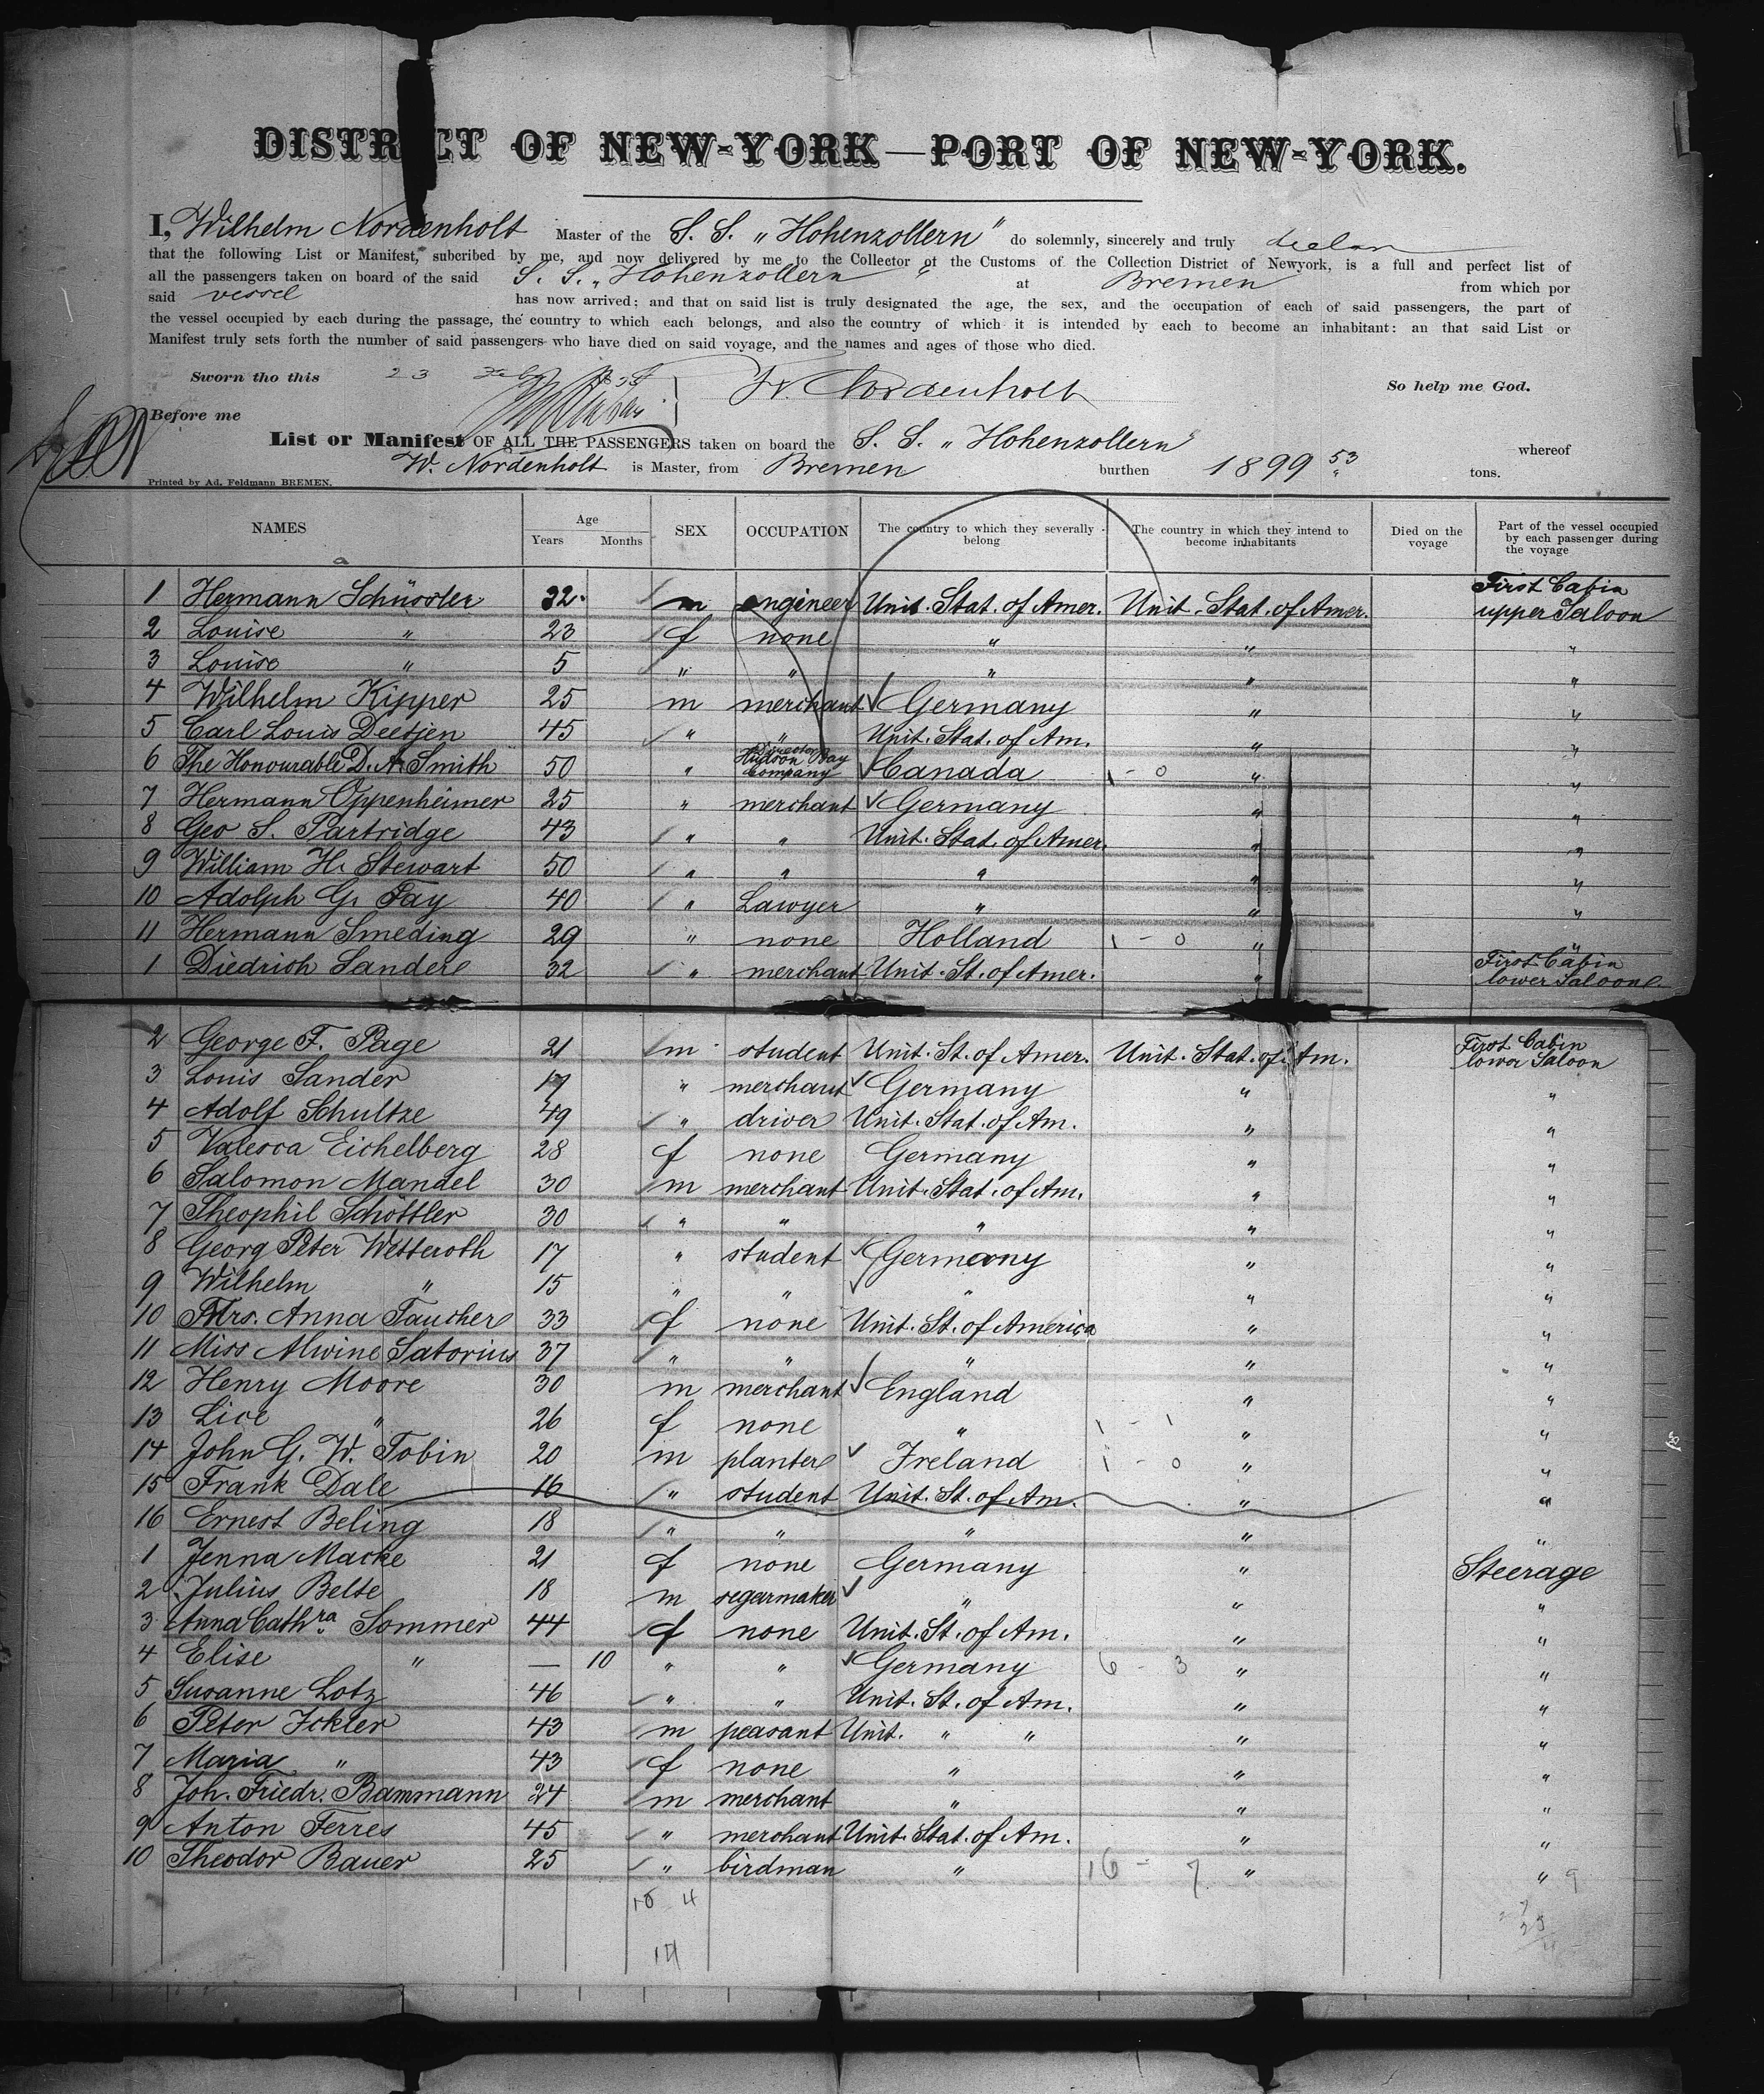 DISTRICT OF NEW-YORK—PORT OF NEW-YORK.
I, Wilhelm Nordenholt Master of the S. S. „Hohenzollern" do solemnly, sincerely and truly
that the following List or Manifest, subcribed by me, and now delivered by me to the Collector of the Customs of the Collection District of Newyork, is a full and perfect list of
all the passengers taken on board of the said S. S. „Hohenzollern" at Bremen from which por
said vessel has now arrived: and that on said list is truly designated the age, the sex, and the occupation of each of said passengers, the part of
the vessel occupied by each during the passage, the country to which each belongs, and also the country of which it is intended by each to become an inhabitant: an that said List or
Manifest truly sets forth the number of said passengers who have died on said voyage, and the names and ages of those who died.
Sworn tho this 23 W. Nordenholt So help me God.
Before me
List or Manifest OF ALL THE PASSENGERS taken on board the S. S. „Hohenzollern" whereof
W. Nordenholt is Master, from Bremen burthen 1899 53 tons.
Printed by Ad. Feldmann BREMEN.
NAMES Age Years Months SEX OCCUPATION The country to which they severally belong The country in which they intend to become inhabitants Died on the voyage Part of the vessel occupied by each passenger during the voyage
1 Hermann Schüssler 32 m engineer Unit. Stat. of Amer. Unit. Stat. of Amer. First Cabin upper Saloon
2 Louise " 23 f none " " "
3 Louise " 5 " " " " "
4 Wilhelm Kipper 25 m merchant Germany " "
5 Carl Louis Deetjen 45 " " Unit. Stat. of Am. " "
6 The Honourable D. A. Smith 50 " Director Hudson Bay Company Canada 1 - 0 " "
7 Hermann Oppenheimer 25 " merchant Germany " "
8 Geo S. Partridge 43 " " Unit. Stat. of Amer. " "
9 William H. Stewart 50 " " " " "
10 Adolph G. Fay 40 " Lawyer " " "
11 Hermann Smeding 29 " none Holland 1 - 0 " "
1 Diedrich Sander 32 " merchant Unit. St. of Amer. " First Cabin lower Saloon
2 George F. Page 21 m student Unit. St. of Amer. Unit. Stat. of Am. First Cabin lower Saloon
3 Louis Sander 17 " merchant Germany " "
4 Adolf Schultze 49 " driver Unit. Stat. of Am. " "
5 Valesca Eichelberg 28 f none Germany " "
6 Salomon Mandel 30 m merchant Unit. Stat. of Am. " "
7 Theophil Schöttler 30 " " " " "
8 Georg Peter Wetteroth 17 " student Germany " "
9 Wilhelm " 15 " " " " "
10 Mrs. Anna Faucher 33 f none Unit. St. of America " "
11 Miss Alwine Satorius 37 " " " " "
12 Henry Moore 30 m merchant England " "
13 " 26 f none " 1 - 1 " "
14 John G. W. Tobin 20 m planter Ireland 1 - 0 " "
15 Frank Dale 16 " student Unit. St. of Am. " "
16 Ernest Beling 18 " " " " "
1 Jenna Macke 21 f none Germany " Steerage
2 Julius Belte 18 m segarmaker " " "
3 Anna Cathra Sommer 44 f none Unit. St. of Am. " "
4 Elise " — 10 " " Germany 6 - 3 " "
5 Susanne Lotz 46 " " Unit. St. of Am. " "
6 Peter Ickler 43 m peasant Unit. " " " "
7 Maria " 43 f none " " "
8 Joh. Friedr. Bammann 24 m merchant " " "
9 Anton Ferres 45 " merchant Unit. Stat. of Am. " "
10 Theodor Bauer 25 " birdman " 16 - 7 " " 9